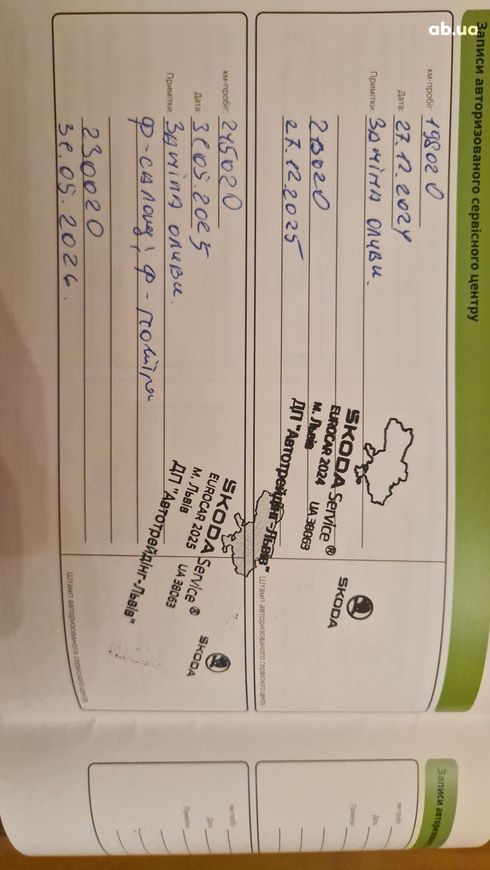 ab.ua
Записи авторизованого сервісного центру
км-пробіг: 198020
Дата: 27.12.2024
Примітки: Заміна оливи.
27.12.2025
SKODA Service ®
EUROCAR 2024 UA 38063
м. Львів
ДП "Автотрейдінг-Львів"
SKODA
Штамп авторизованого сервісного центру
км-пробіг: 215020
Дата: 31.05.2025
Примітки: Заміна оливи.
Ф-салону, Ф-повітря
230020
31.05.2026.
SKODA Service ®
EUROCAR 2025 UA 38063
м. Львів
ДП "Автотрейдінг-Львів"
SKODA
Штамп авторизованого сервісного центру
Записи авторизован
км-пробіг
Дата
Примітки
км-пробіг
Дата
Примітки